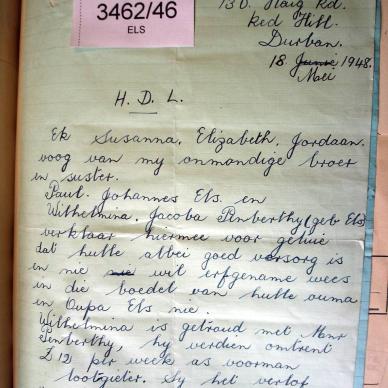 3462/46
ELS
130. Haig Rd.
Red Hill.
Durban.
18 Junie 1948.
Mei
H. D. L.
Ek Susanna, Elizabeth, Jordaan.
voog van my onmondige broer
en suster.
Paul. Johannes Els. en
Wilhelmina. Jacoba Penberthy (geb Els)
verklaar hiermee voor getuie
dat hulle albei goed versorg is
en nie nie wil erfgename wees
in die boedel van hulle ouma
en Oupa Els nie.
Wilhelmina is getraud met Mnr
Penberthy, hy verdien omtrent
£12 per week as voorman
lootgieter. Sy het verlof